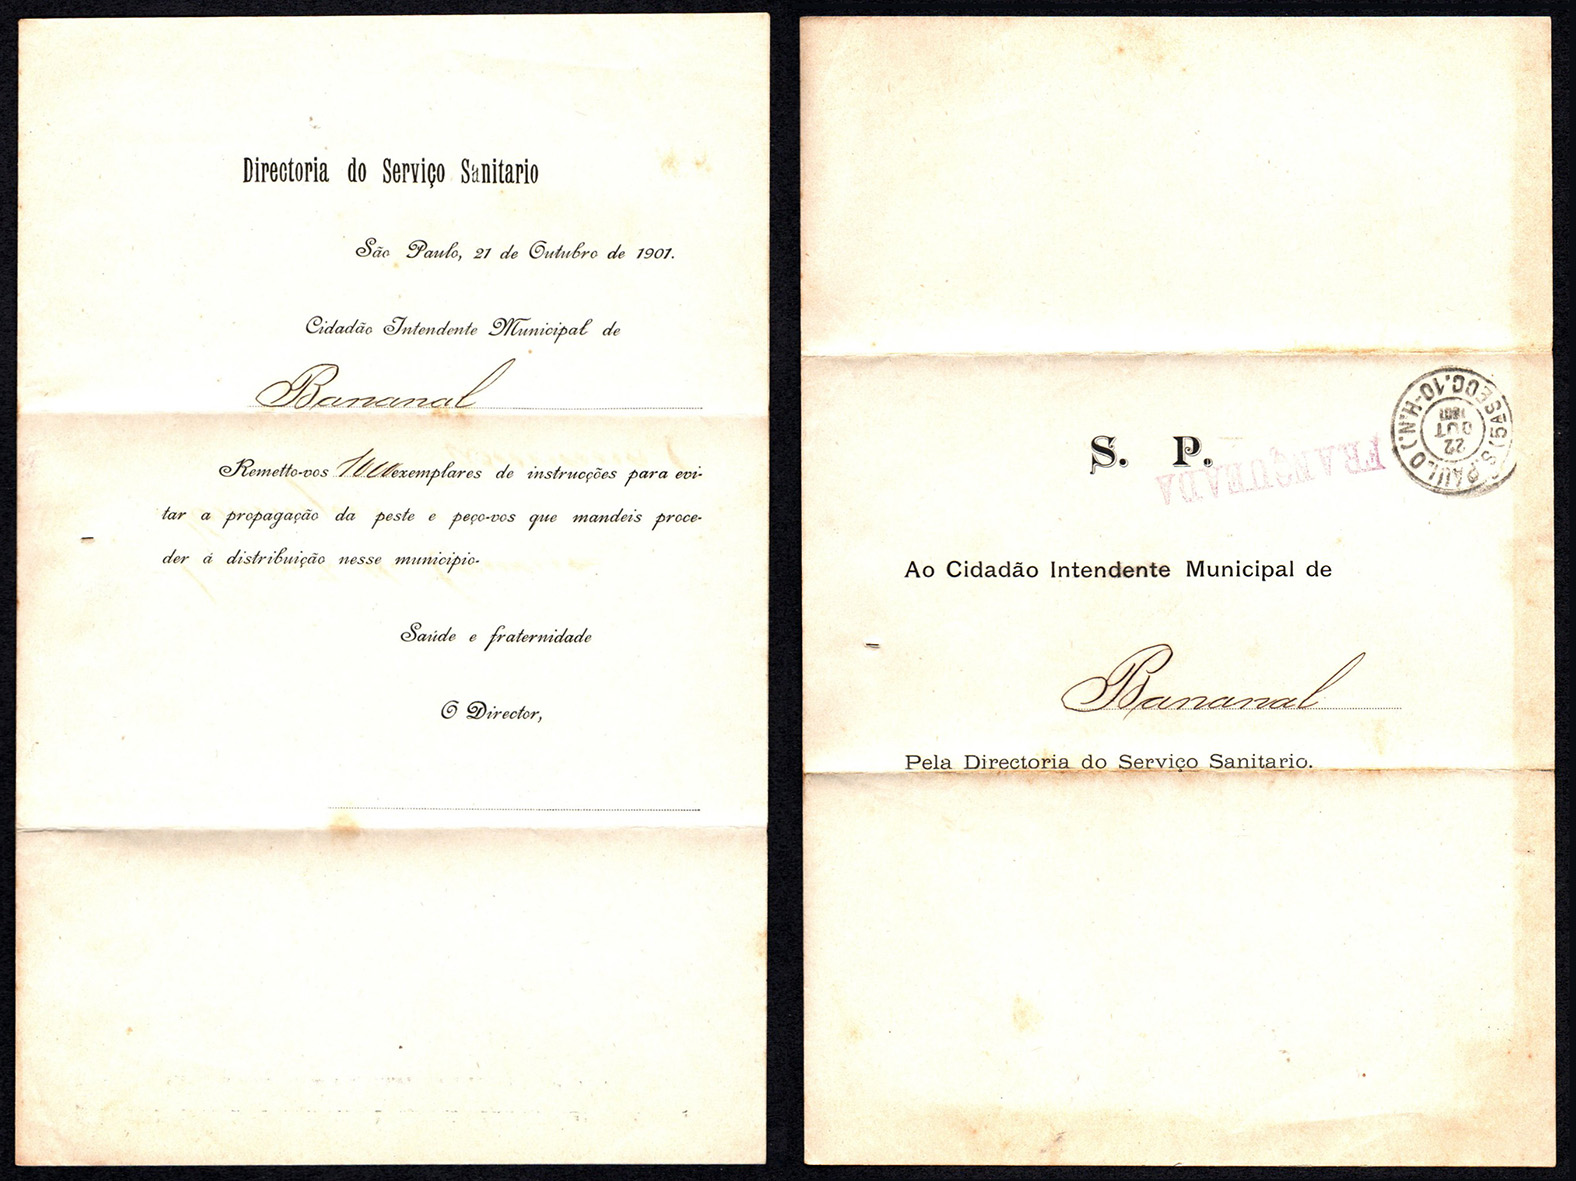 Directoria do Serviço Sanitario
São Paulo, 21 de Outubro de 1901.
Cidadão Intendente Municipal de
Bananal
Remetto-vos 100 exemplares de instrucções para evi-
tar a propagação da peste e peço-vos que mandeis proce-
der á distribuição nesse municipio.
Saúde e fraternidade
O Director,
S. P.
FRANQUEADA
S. PAULO
22
OUT
1901
Ao Cidadão Intendente Municipal de
Bananal
Pela Directoria do Serviço Sanitario.